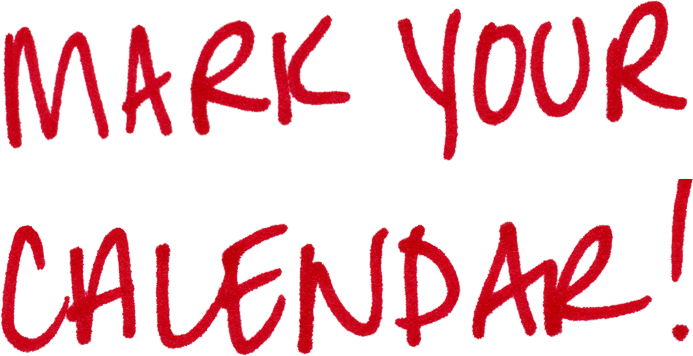 MARK YOUR
CALENDAR!